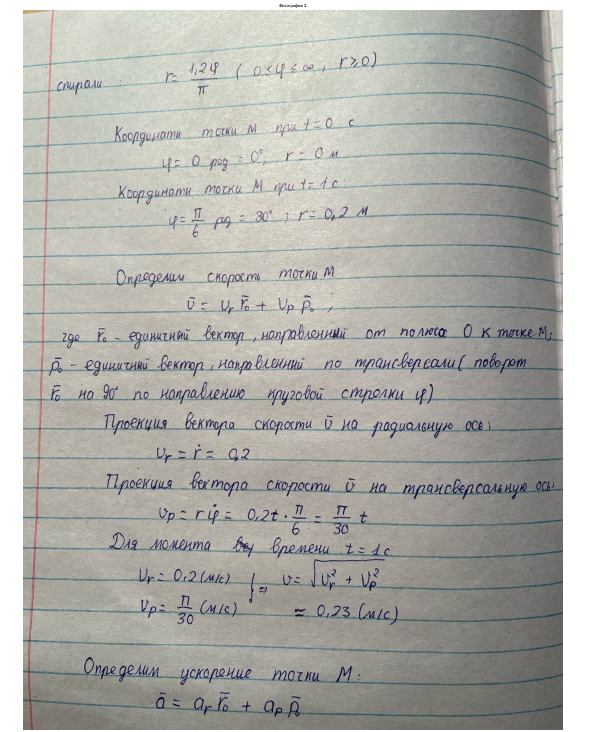 Фотография 2
спирали : r = 1,2φ/π ( 0 ≤ φ < ∞, r ⩾ 0 )
Координати точки M при t = 0 с
φ = 0 рад = 0°, r = 0 м
Координати точки M при t = 1 с:
φ = π/6 рад = 30° ; r = 0,2 м
Определим скорость точки M
v̄ = vr r̄₀ + vp p̄₀ ,
где r̄₀ - единичный вектор, направленний от полюса O к точке M;
p̄₀ - единичный вектор, направленний по трансверсали ( поворот
r̄₀ на 90° по направлению круговой стрелки φ)
Проекция вектора скорости v̄ на радиальную ось:
vr = ṙ = 0,2
Проекция вектора скорости v̄ на трансверсальную ось:
vp = rφ̇ = 0,2t · π/6 = π/30 t
Для момента времени t = 1 с
vr = 0,2 (м/с) } ⇒ v = √(vr² + vp²)
vp = π/30 (м/с) ≈ 0,23 (м/с)
Определим ускорение точки M:
ā = ar r̄₀ + ap p̄₀